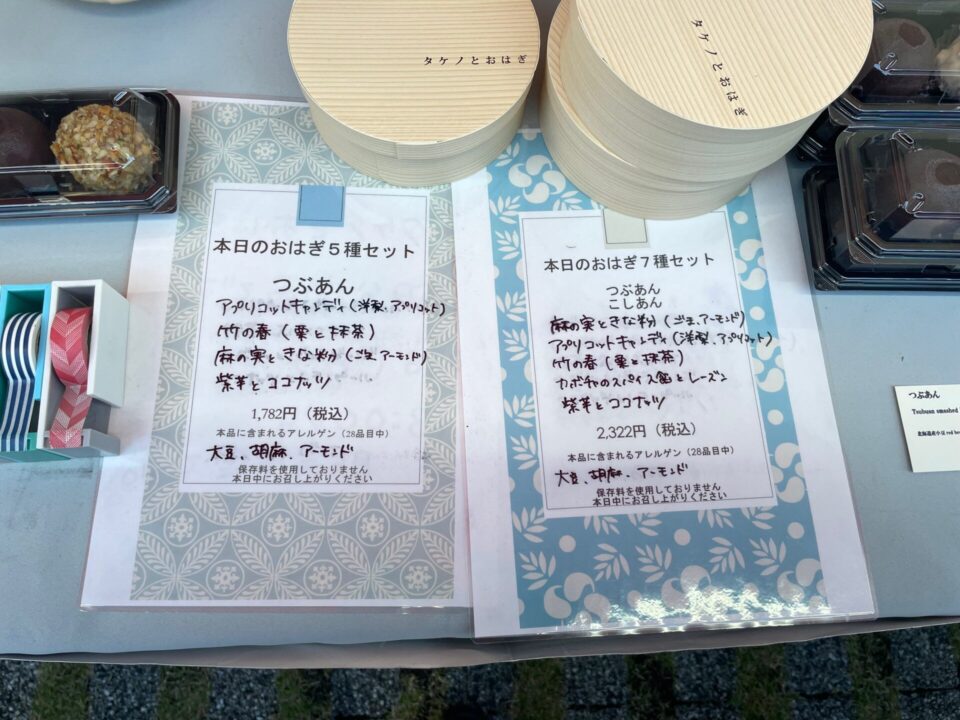 タケノとおはぎ
タケノとおはぎ
本日のおはぎ5種セット
つぶあん
アプリコットキャンディ（洋梨、アプリコット）
竹の春（栗と抹茶）
麻の実ときな粉（ごま、アーモンド）
紫芋とココナッツ
1,782円（税込）
本品に含まれるアレルゲン（28品目中）
大豆、胡麻、アーモンド
保存料を使用しておりません
本日中にお召し上がりください
本日のおはぎ7種セット
つぶあん
こしあん
麻の実ときな粉（ごま、アーモンド）
アプリコットキャンディ（洋梨、アプリコット）
竹の春（栗と抹茶）
カボチャのスパイス餡とレーズン
紫芋とココナッツ
2,322円（税込）
本品に含まれるアレルゲン（28品目中）
大豆、胡麻、アーモンド
保存料を使用しておりません
本日中にお召し上がりください
つぶあん
Tsubuan smashed
北海道産小豆 red be